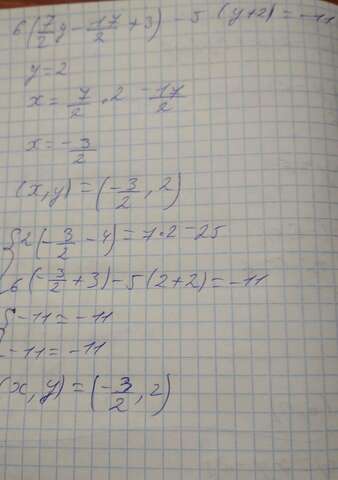 6(7/2 y - 17/2 + 3) - 5 (y+2) = -11
y = 2
x = 7/2 · 2 - 17/2
x = - 3/2
(x, y) = (- 3/2, 2)
{ 2(- 3/2 - 4) = 7·2 - 25
6(- 3/2 + 3) - 5(2+2) = -11
{ -11 = -11
-11 = -11
(x, y) = (- 3/2, 2)